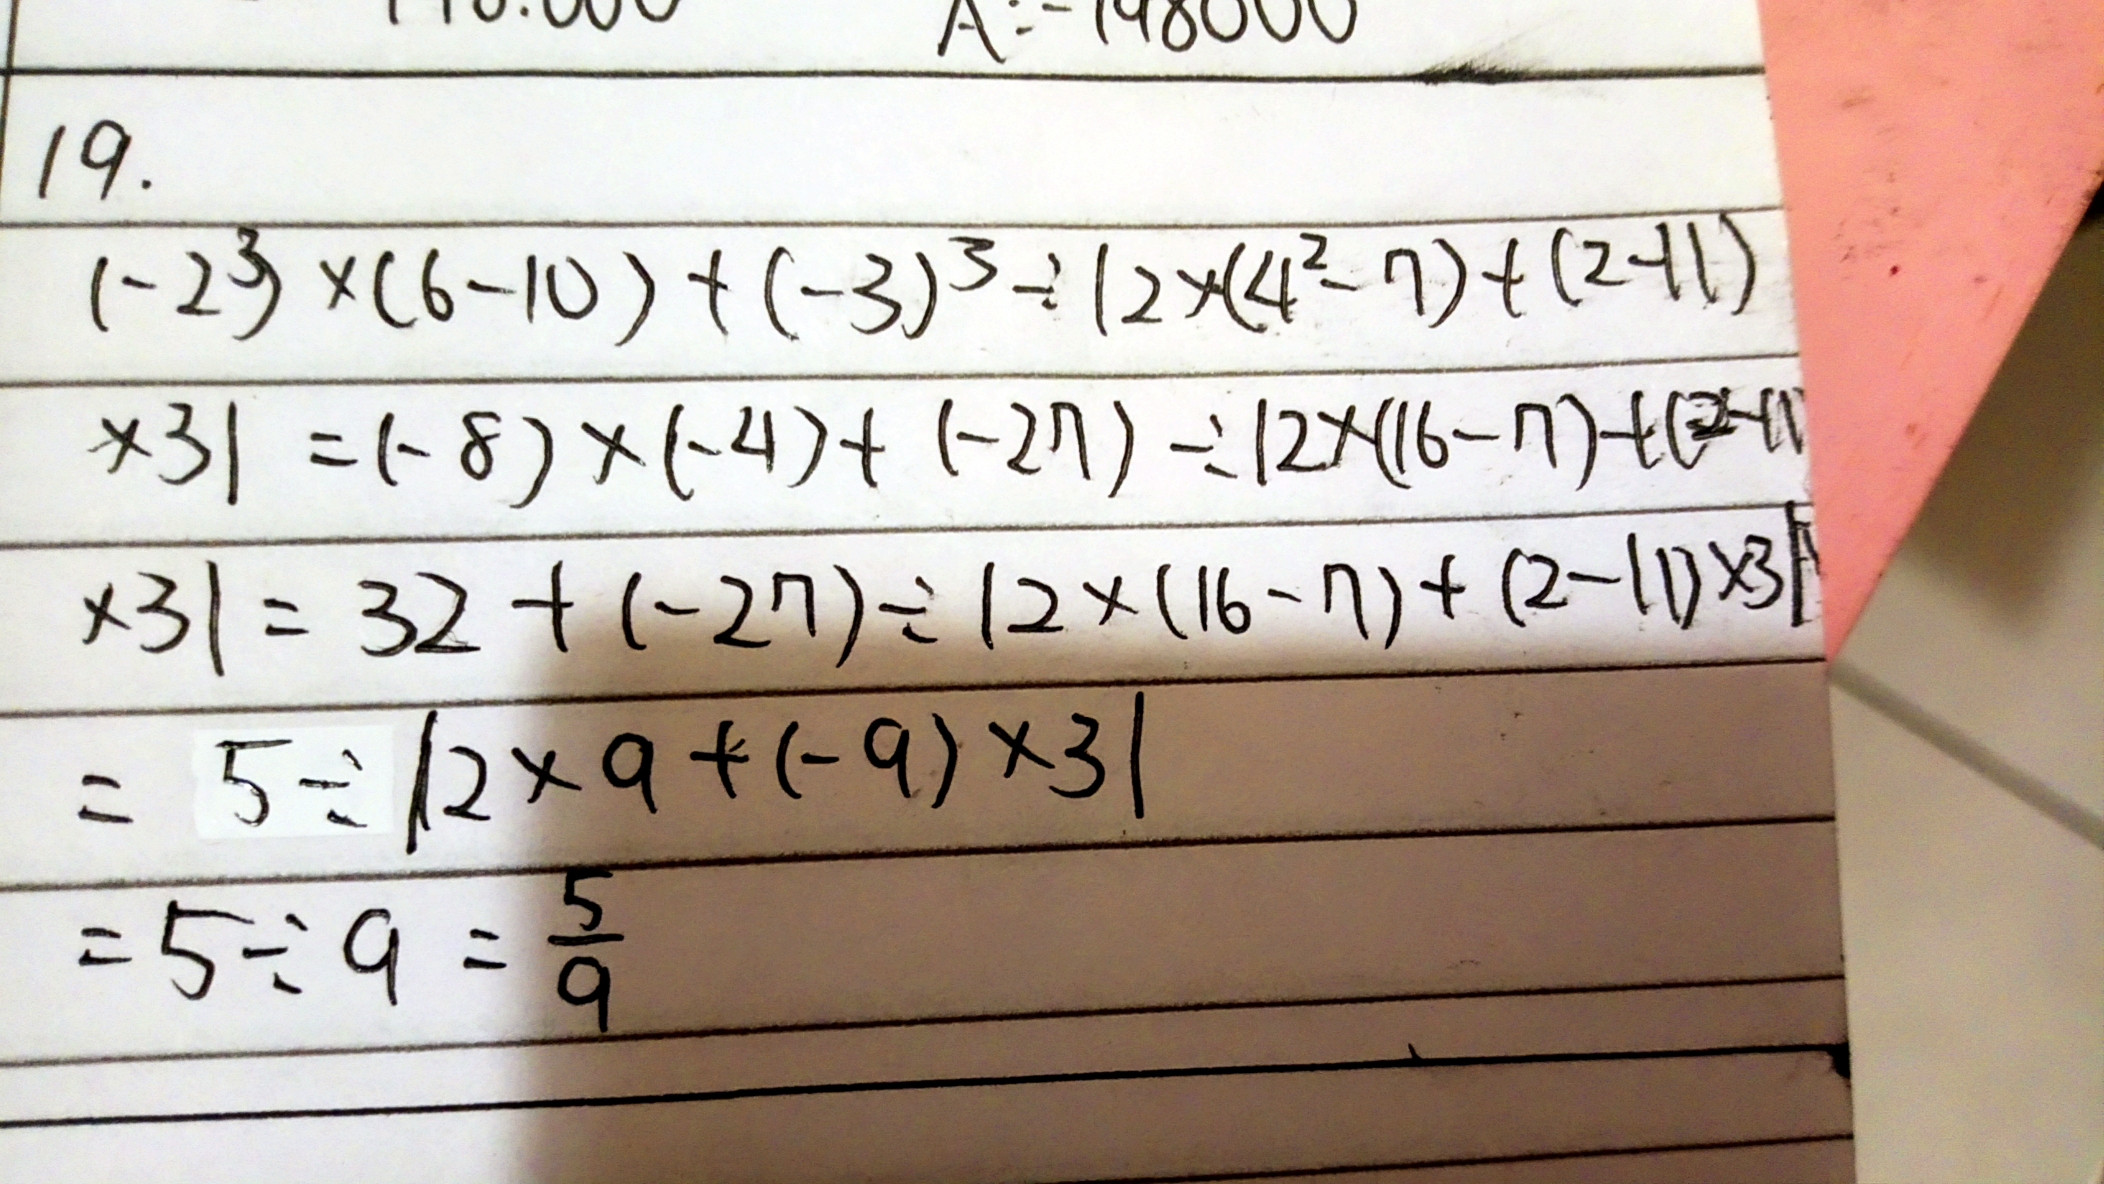 A:-198000
19.
(-2³)×(6-10)+(-3)³÷|2×(4²-7)+(2-11)
×3|=(-8)×(-4)+(-27)÷|2×(16-7)+(2-11)
×3|=32+(-27)÷|2×(16-7)+(2-11)×3|
=5÷|2×9+(-9)×3|
=5÷9=5/9